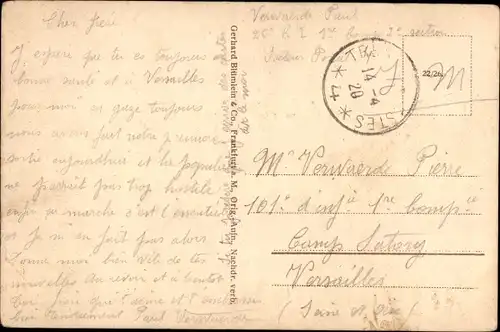 Cher frère
J'espère que tu es toujours en
bonne santé et à Versailles
pour moi ça gaze toujours
nous avons fait notre première
sortie aujourd'hui et la population
ne paraît pas trop hostile
enfin ça marche c'est l'essentiel
Je n'en fait pas alors
Donne moi bien vite de tes
nouvelles. Au revoir et à bientôt
ton frère que t'aime et t'embrasse
bien tendrement Paul Verwaerde
Gerhard Blümlein & Co., Frankfurt a. M. Orig.-Aufn. Nachdr. verb.
Verwaerde Paul
1re comp 3e section
Secteur Postal
TRÉSOR ET POSTES
14-4
20
* 4 *
22/26.
F M
Mr Verwaerde Pierre
101e d'infie 1re compie
Camp Satory
Versailles
(Seine et Oise)